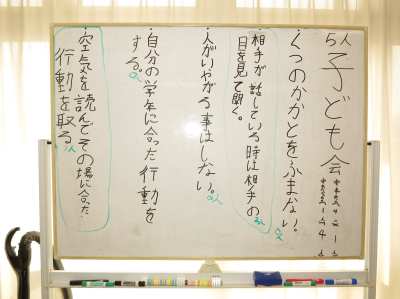 5人
子ども会
・くつのかかとをふまない。
相手が話している時は相手の
目を見て聞く。
・人がいやがる事はしない。
・自分の学年に合った行動を
する。
・空気を読んでその場に合った
行動を取る